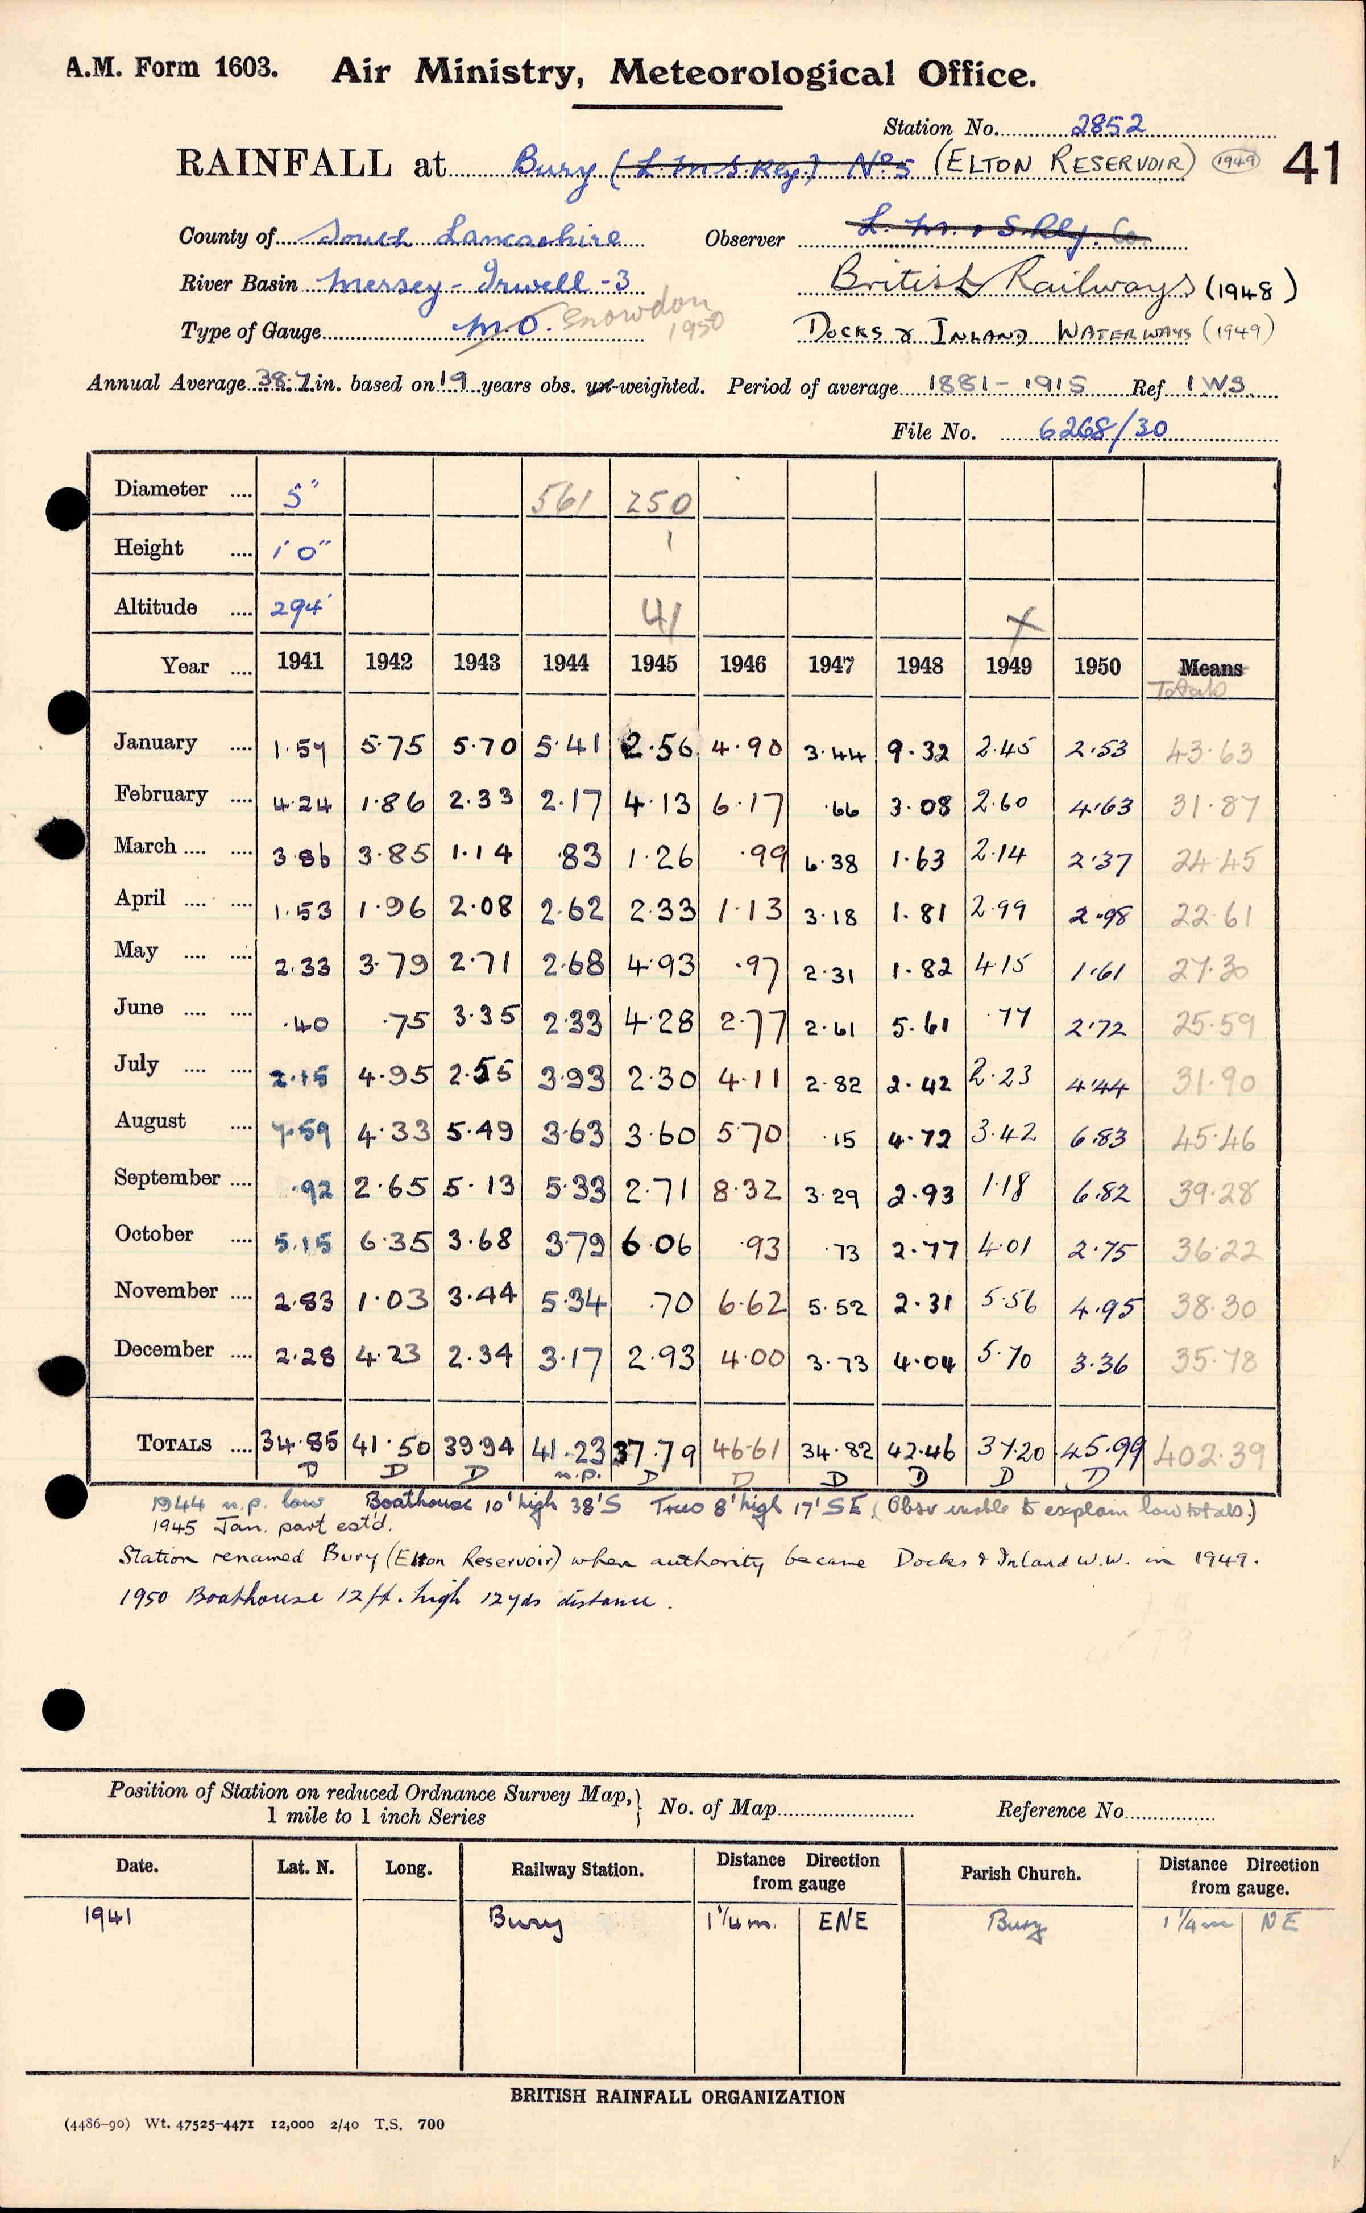 A.M. Form 1603. Air Ministry, Meteorological Office.
Station No. 2852
RAINFALL at Bury (L.M.S. Rly.) No 5 (ELTON RESERVOIR) (1949) 41
County of South Lancashire Observer L.M. & S Rly. Co
River Basin Mersey - Irwell - 3 British Railways (1948)
Type of Gauge M.O. Snowdon 1950 DOCKS & INLAND WATERWAYS (1949)
Annual Average 38.7 in. based on 19 years obs. un-weighted. Period of average 1881-1915 Ref IWS
File No. 6268/30
Diameter .... 5" 561 250
Height .... 1' 0" 1
Altitude .... 294' 41 X
Year .... 1941 1942 1943 1944 1945 1946 1947 1948 1949 1950 Means Totals
January .... 1.57 5.75 5.70 5.41 2.56 4.90 3.44 9.32 2.45 2.53 43.63
February .... 4.24 1.86 2.33 2.17 4.13 6.17 .66 3.08 2.60 4.63 31.87
March .... .... 3.86 3.85 1.14 .83 1.26 .99 6.38 1.63 2.14 2.37 24.45
April .... .... 1.53 1.96 2.08 2.62 2.33 1.13 3.18 1.81 2.99 2.98 22.61
May .... .... 2.33 3.79 2.71 2.68 4.93 .97 2.31 1.82 4.15 1.61 27.30
June .... .... .40 .75 3.35 2.33 4.28 2.77 2.61 5.61 .77 2.72 25.59
July .... .... 2.15 4.95 2.55 3.93 2.30 4.11 2.82 2.42 2.23 4.44 31.90
August .... 7.59 4.33 5.49 3.63 3.60 5.70 .15 4.72 3.42 6.83 45.46
September .... .92 2.65 5.13 5.33 2.71 8.32 3.29 2.93 1.18 6.82 39.28
October .... 5.15 6.35 3.68 3.79 6.06 .93 .73 2.77 4.01 2.75 36.22
November .... 2.83 1.03 3.44 5.34 .70 6.62 5.52 2.31 5.56 4.95 38.30
December .... 2.28 4.23 2.34 3.17 2.93 4.00 3.73 4.04 5.70 3.36 35.78
TOTALS .... 34.85 41.50 39.94 41.23 37.79 46.61 34.82 42.46 37.20 45.99 402.39
D D D n.p. D D D D D D
1944 n.p. low Boathouse 10' high 38' S Trees 8' high 17' SE (Obsr unable to explain low totals.)
1945 Jan. part est'd.
Station renamed Bury (Elton Reservoir) when authority became Docks & Inland W.W. in 1949.
1950 Boathouse 12 ft. high 12 yds distance.
Position of Station on reduced Ordnance Survey Map, 1 mile to 1 inch Series } No. of Map Reference No
Date. Lat. N. Long. Railway Station. Distance Direction from gauge Parish Church. Distance Direction from gauge.
1941 Bury 1 1/4 m. ENE Bury 1 1/4 m NE
BRITISH RAINFALL ORGANIZATION
(4486-90) Wt. 47525-4471 12,000 2/40 T.S. 700